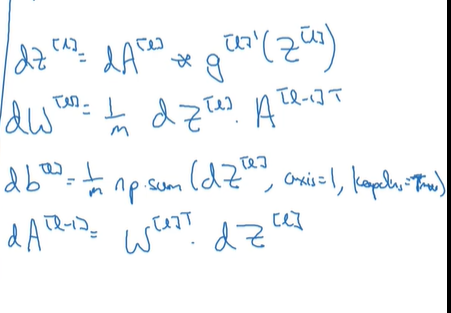 dz^[l] = dA^[l] * g^[l]'(z^[l])
dW^[l] = 1/m dZ^[l] · A^[l-1]T
db^[l] = 1/m np.sum(dZ^[l], axis=1, keepdims=True)
dA^[l-1] = W^[l]T · dZ^[l]